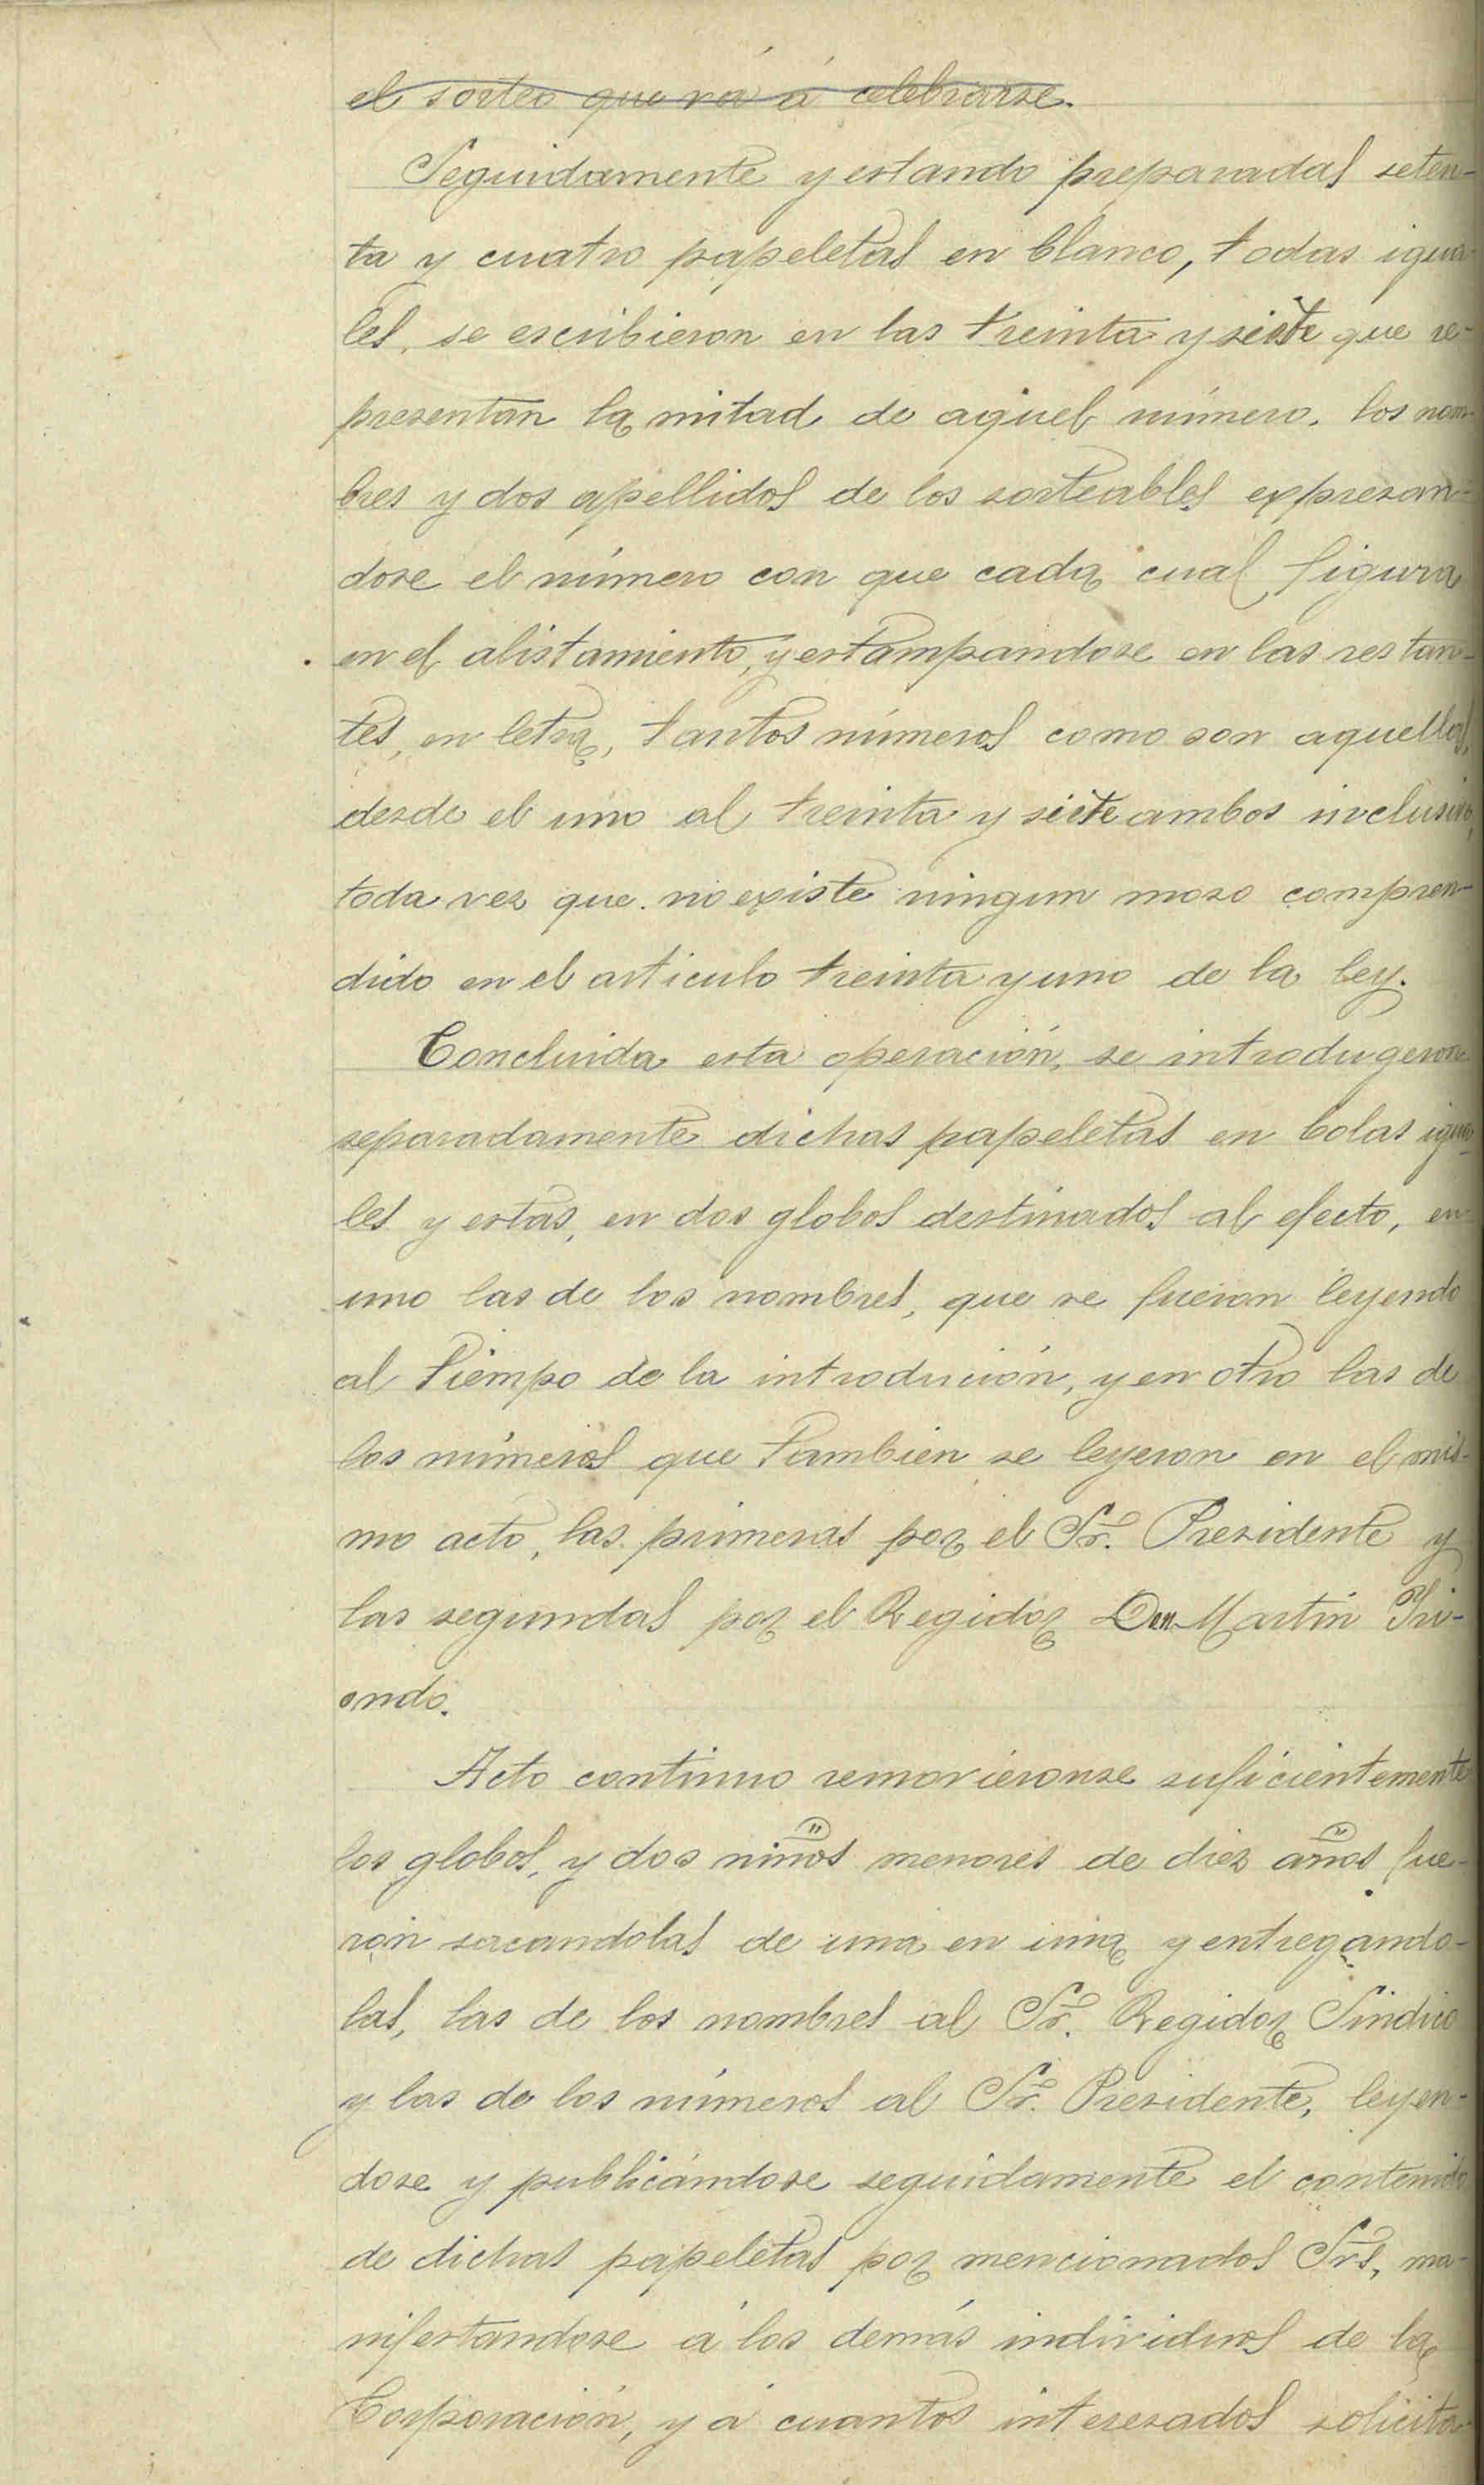 el sorteo que vá á celebrarse.
Seguidamente y estando preparadas seten-
ta y cuatro papeletas en blanco, todas igua-
les, se escribieron en las treinta y siete que re-
presentan la mitad de aquel número, los nom-
bres y dos apellidos de los sorteables expresan-
dose el número con que cada cual figura
en el alistamiento, y estampandose en las restan-
tes, en letra, tantos números como son aquellos,
desde el uno al treinta y siete ambos inclusive,
toda vez que no existe ningun mozo compren-
dido en el articulo treinta y uno de la ley.
Concluida esta operación, se introdugeron
separadamente dichas papeletas en bolas igua-
les y estas, en dos globos destinados al efecto, en
uno las de los nombres, que se fueron leyendo
al tiempo de la introdución, y en otro las de
los números que tambien se leyeron en el mis-
mo acto, las primeras por el Sr. Presidente y
las segundas por el Regidor Don Martin Iri-
ondo.
Acto continuo removiéronse suficientemente
los globos, y dos niños menores de diez años fue-
ron sacandolas de una en una y entregando-
las, las de los nombres al Sr. Regidor Sindico
y las de los números al Sr. Presidente, leyen-
dose y publicándose seguidamente el contenido
de dichas papeletas por mencionados Srs, ma-
nifestandose á los demás individuos de la
Corporación, y á cuantos interesados solicita-